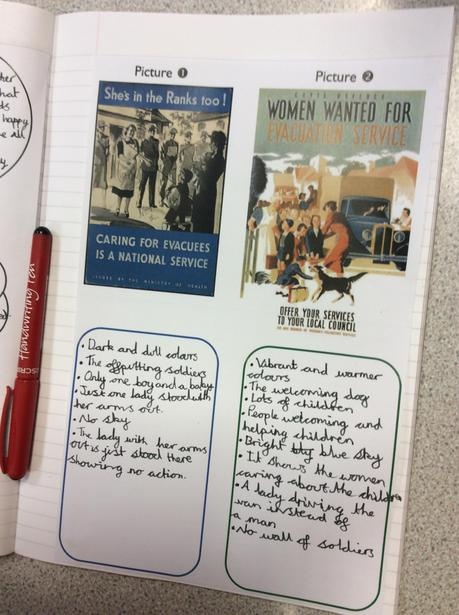 ther
hat
ds
happy
e all
y.
Handwriting Pen
Picture 1
She's in the Ranks too!
CARING FOR EVACUEES
IS A NATIONAL SERVICE
ISSUED BY THE MINISTRY OF HEALTH
• Dark and dull colours
• The offputting soldiers
• Only one boy and a baby
• Just one lady stood with
her arms out.
• No sky
• The lady with her arms
out is just stood there
showing no action.
Picture 2
CIVIL DEFENCE
WOMEN WANTED FOR
EVACUATION SERVICE
OFFER YOUR SERVICES
TO YOUR LOCAL COUNCIL
• Vibrant and warmer
colours
• The welcoming dog
• Lots of children
• People welcoming and
helping children
• Bright blue sky
• It shows the women
caring about the children
• A lady driving the
van instead of
a man
• No wall of soldiers